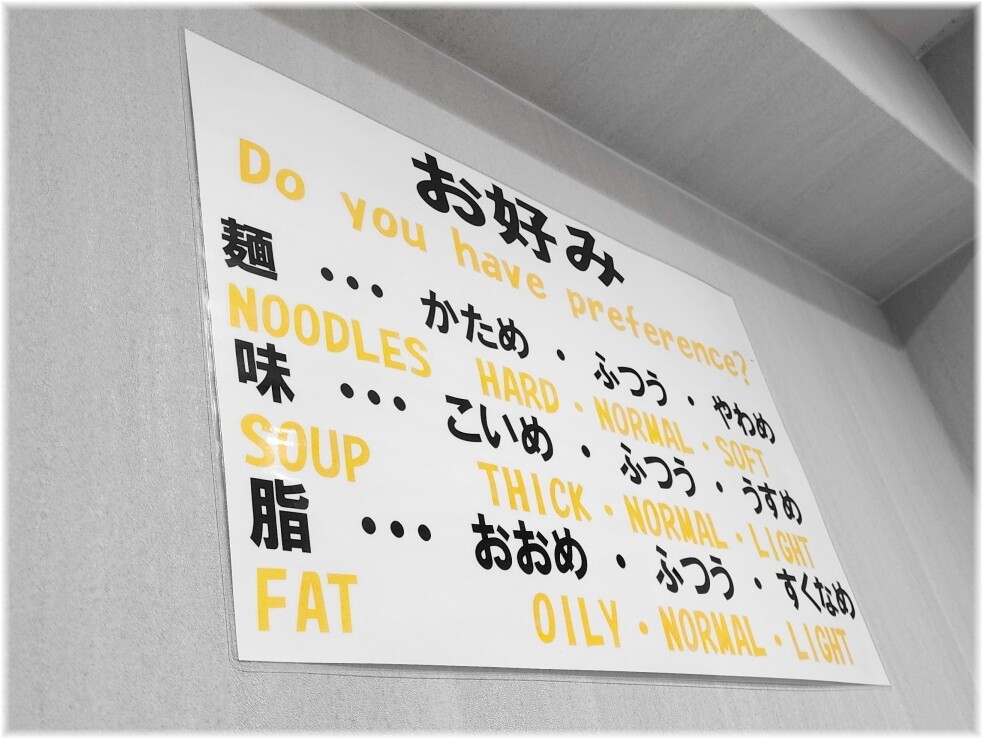 お好み
Do you have preference?
麺 ••• かため・ふつう・やわめ
NOODLES HARD・NORMAL・SOFT
味 ••• こいめ・ふつう・うすめ
SOUP THICK・NORMAL・LIGHT
脂 ••• おおめ・ふつう・すくなめ
FAT OILY・NORMAL・LIGHT